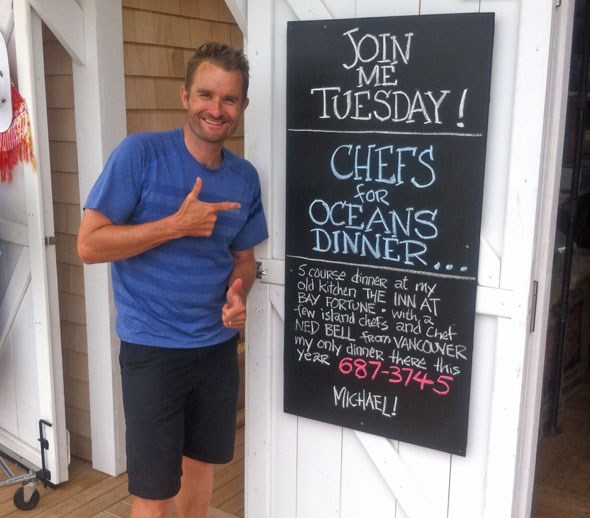 JOIN
ME
TUESDAY!
CHEFS
for
OCEANS
DINNER...
5 course dinner at my
old kitchen THE INN AT
BAY FORTUNE • with a
few island chefs and Chef
NED BELL from VANCOUVER
my only dinner there this
year 687-3745
MICHAEL!